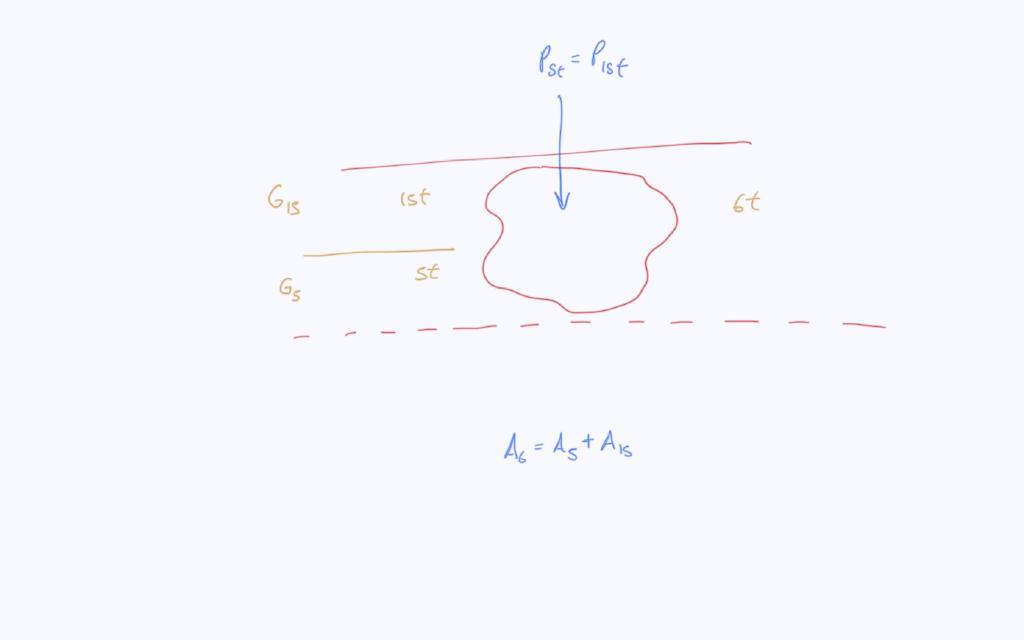 P5t = P15t
G15 15t 6t
G5 5t
A6 = A5 + A15